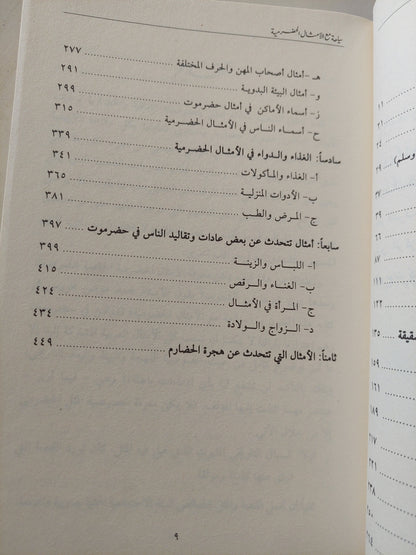 سياحة مع الأمثال الحضرمية
هـ -أمثال أصحاب المهن والحرف المختلفة ٢٧٧
و- أمثال البيئة البدوية ٢٩١
ز- أسماء الأماكن في أمثال حضرموت ٢٩٩
ح- أسمـاء الناس في الأمثـال الحضرمية ٣١٥
سادساً: الغذاء والـدواء في الأمثال الحضرمية ٣٣٩
أ- الغذاء والمـأكولات ٣٤١
ب- الأدوات المنزلية ٣٦٥
ج- المـرض والطب ٣٨١
سابعاً: أمثال تتحدث عن بعض عادات وتقاليد الناس في حضرموت ٣٩٧
أ- اللبـاس والزينـة ٣٩٩
ب- الغناء والـرقص ٤١٥
ج- المرأة في الأمثـال ٤٢٤
د- الزواج والـولادة ٤٣٤
ثامناً: الأمثال التي تتحدث عن هجرة الحضارم ٤٤٩
٩
١١
٢١
٢٤
٢٩
وسلم)
٣٧
٣٩
٦٦
٨٧
١١١
١٢٢
١٣٥
١٥٩
١٦١
١٨٩
٢١٧
٢٢١
٢٣٨